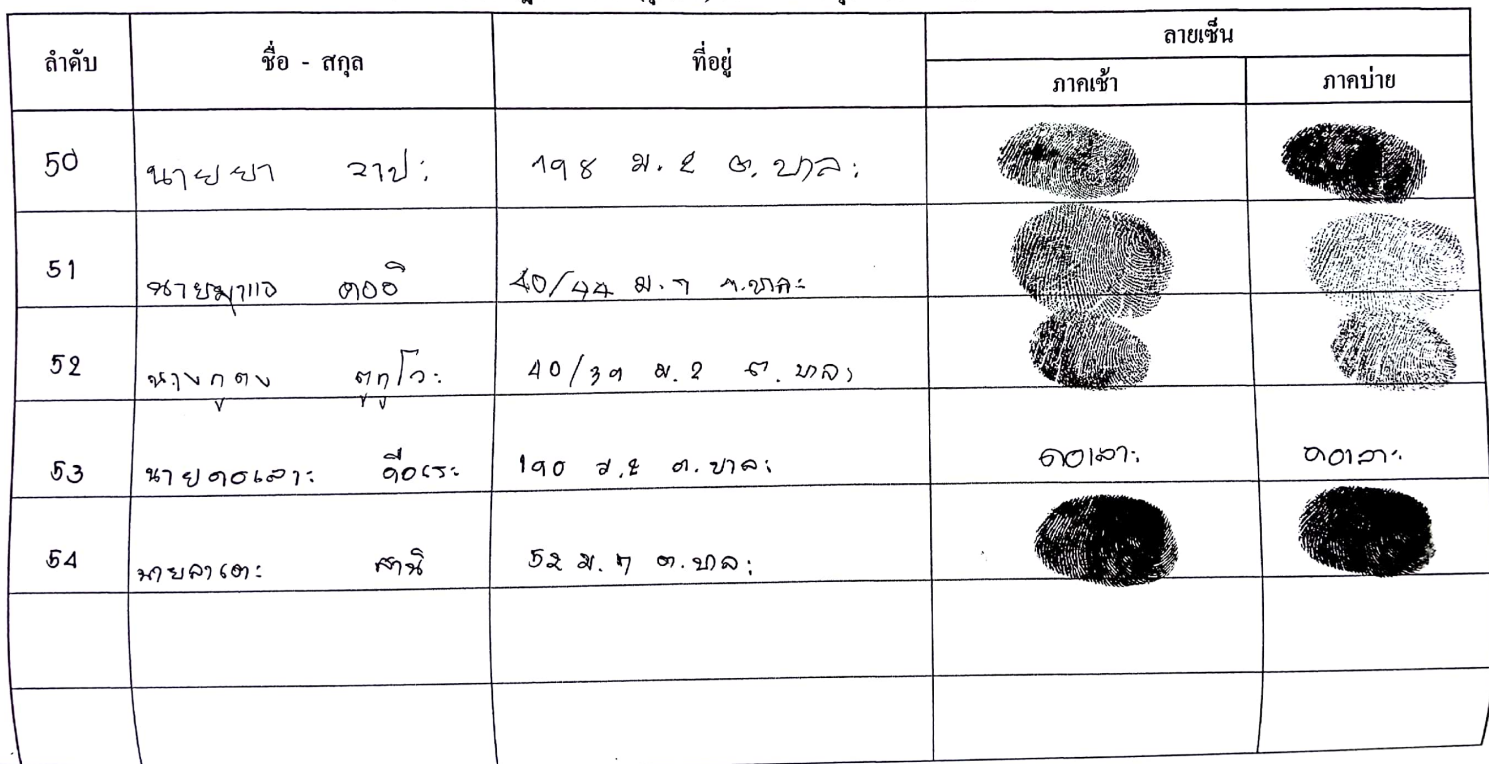 ลำดับ ชื่อ - สกุล ที่อยู่ ลายเซ็น
ภาคเช้า ภาคบ่าย
50 นายยา วาป: 198 ม. 2 ต. บาละ
51 40/44 ม. 7 ต.บาละ
52 40/39 ม. 2 ต. บาละ
53 นายดอเลาะ ดือเระ 190 ม.2 ต. บาละ ดอเลาะ ดอเลาะ
54 นายลาเตะ สานิ 52 ม. 7 ต.บาละ